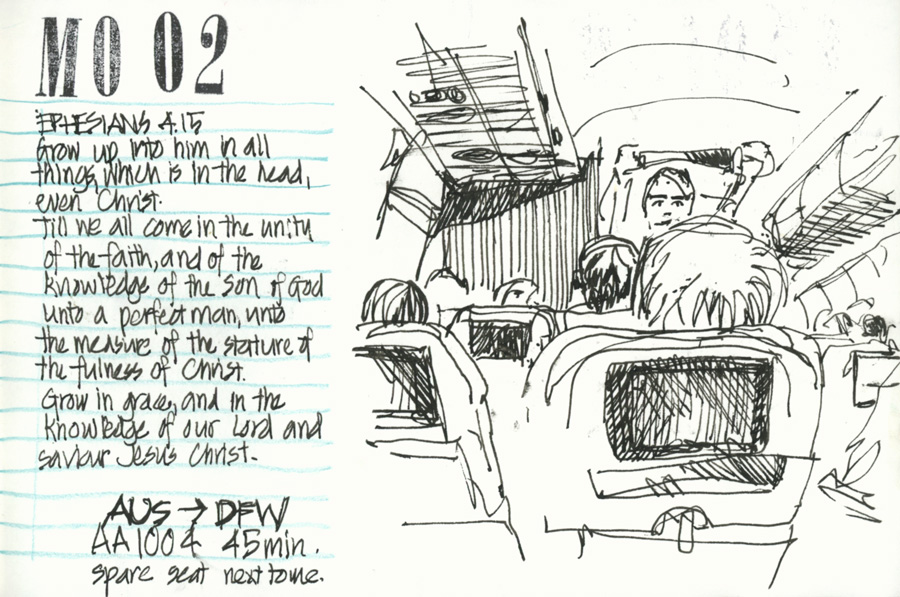 MO 02
EPHESIANS 4.15
Grow up into him in all
things, which is in the head,
even Christ.
Till we all come in the unity
of the faith, and of the
knowledge of the Son of God
unto a perfect man, unto
the measure of the stature of
the fulness of Christ.
Grow in grace, and in the
knowledge of our Lord and
saviour Jesus Christ.
AUS → DFW
AA1004 45min.
spare seat next to me.